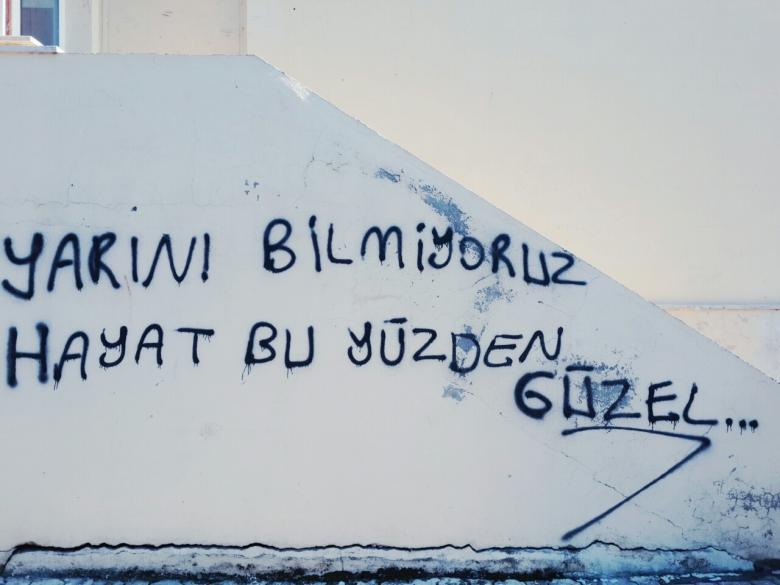 YARINI BİLMİYORUZ
HAYAT BU YÜZDEN
GÜZEL...